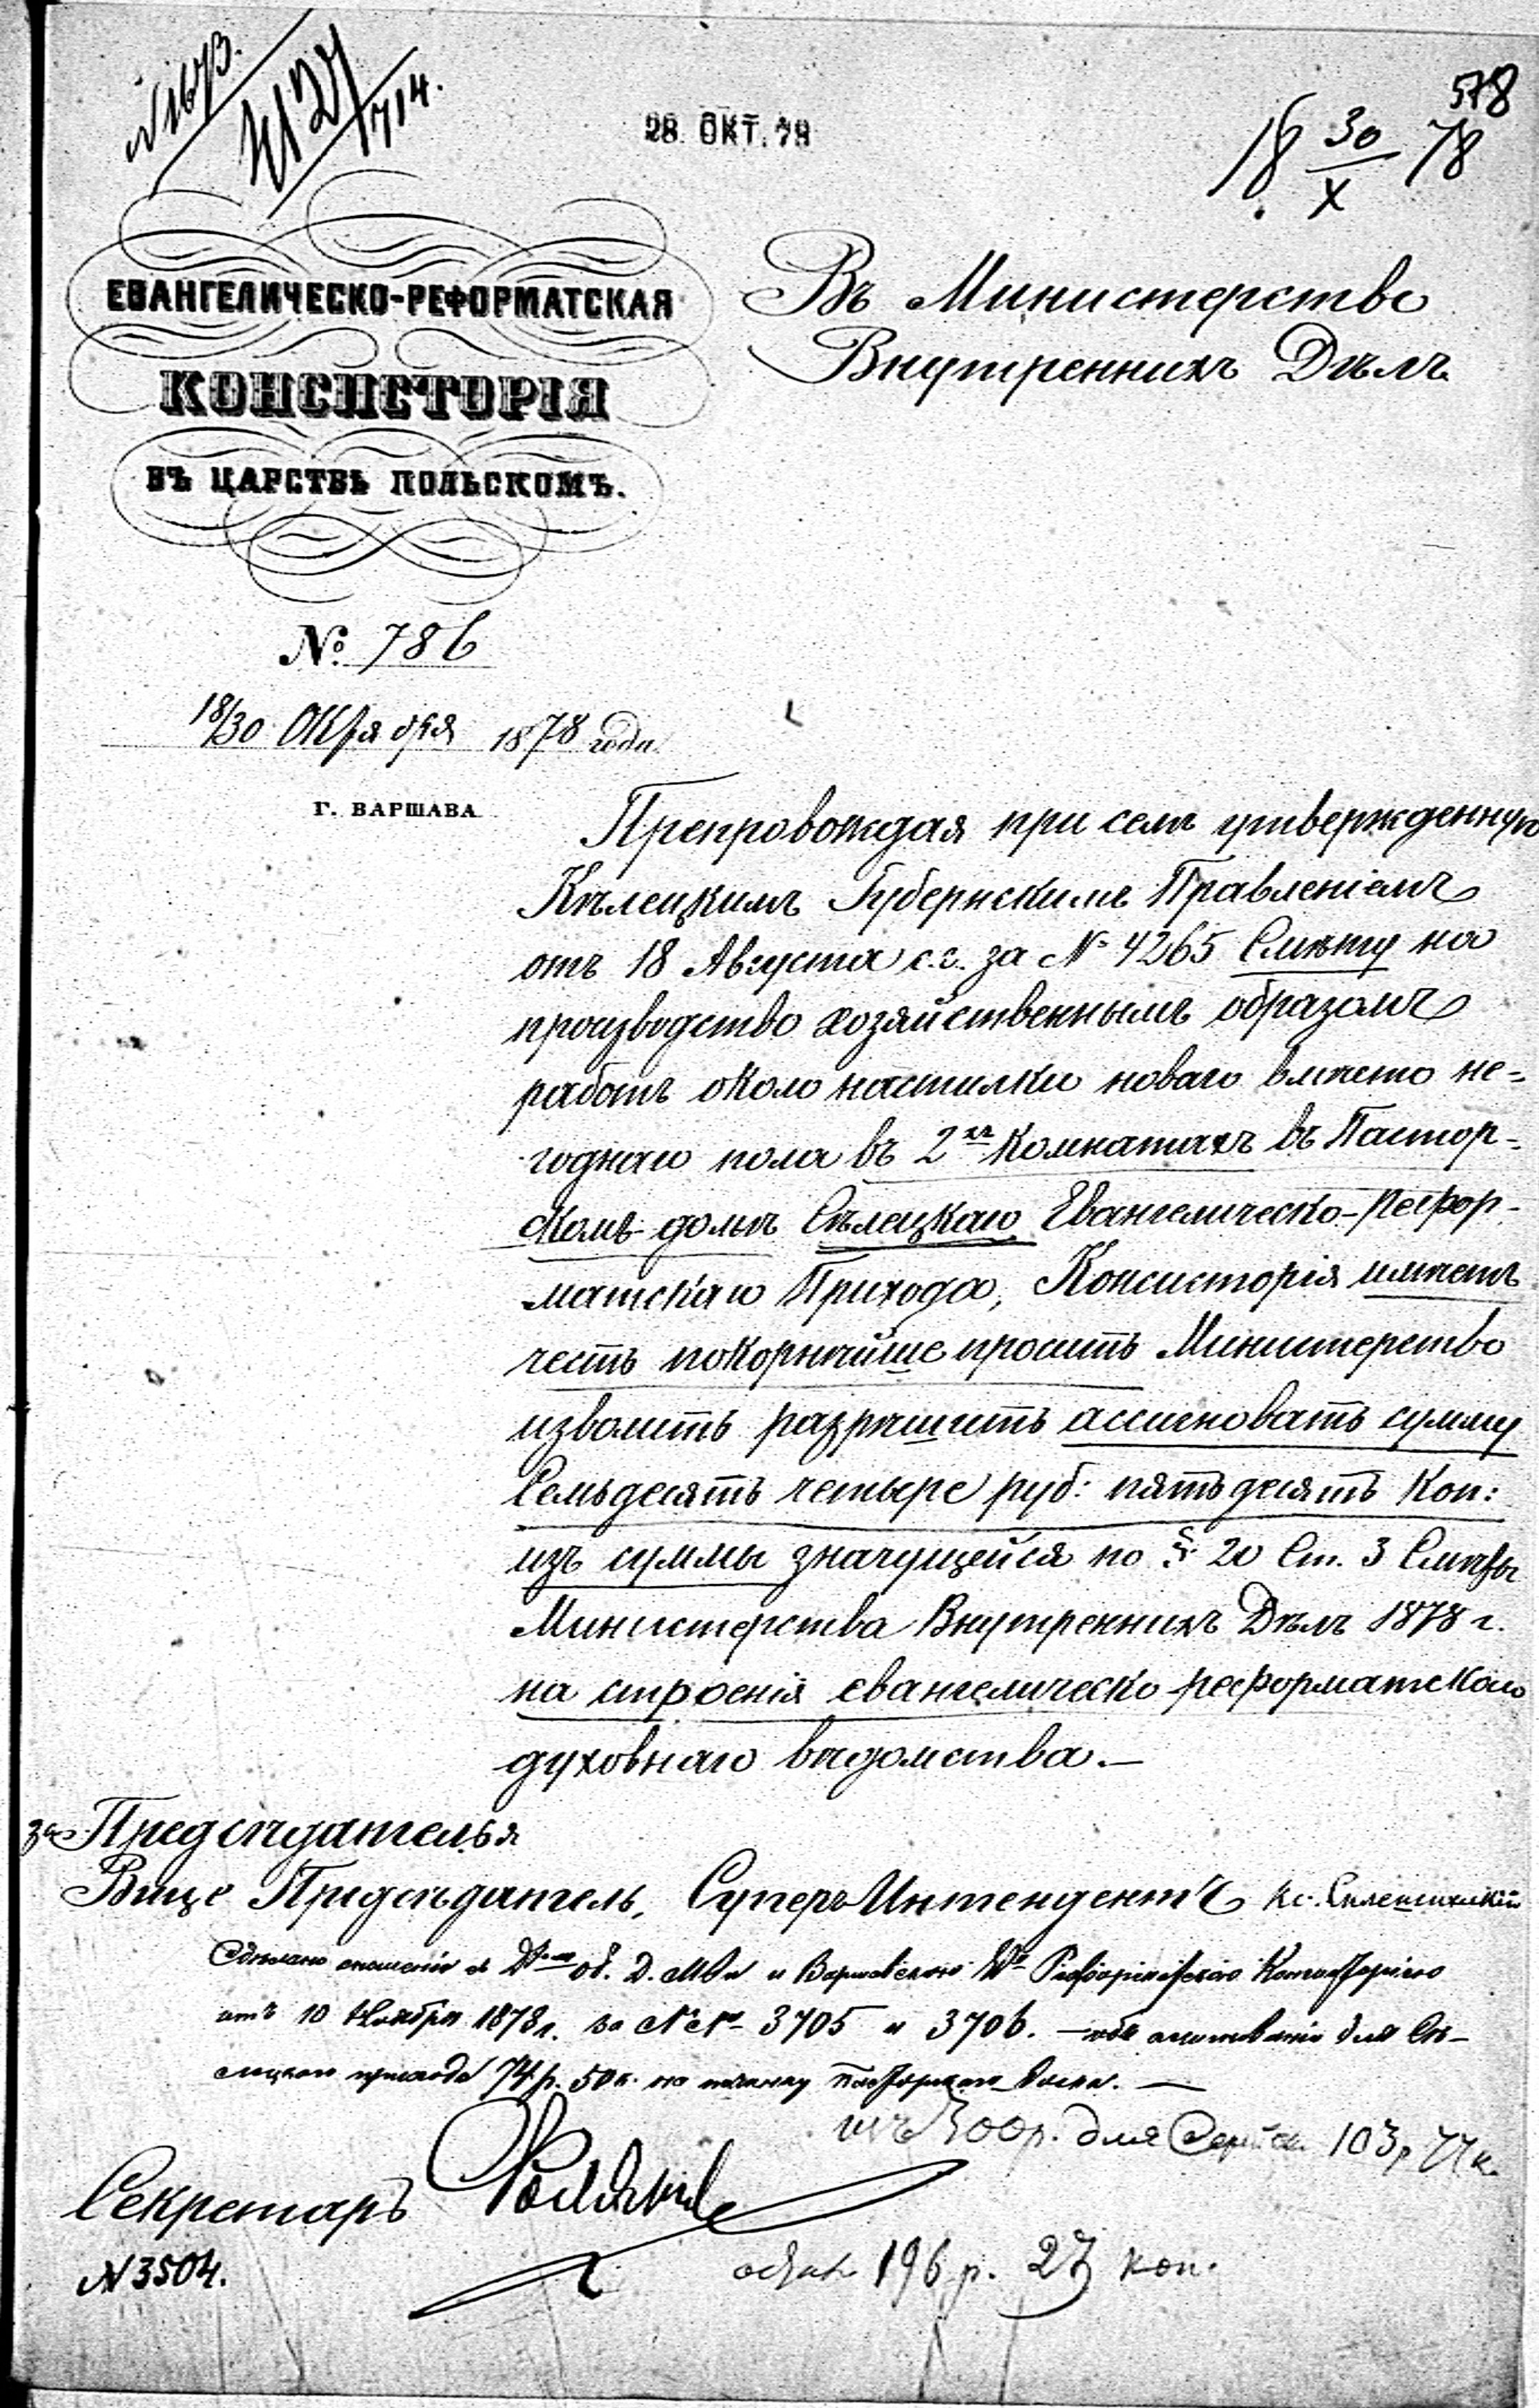 № 1673.
714.
28. ОКТ. 78
578
18 30/X 78
ЕВАНГЕЛИЧЕСКО-РЕФОРМАТСКАЯ
КОНСИСТОРІЯ
ВЪ ЦАРСТВѢ ПОЛЬСКОМЪ.
№ 786
18/30 Октября 1878 года
Г. ВАРШАВА
Въ Министерство
Внутреннихъ Дѣлъ
Препровождая при семъ утвержденную
Кѣлецкимъ Губернскимъ Правленіемъ
отъ 18 Августа с.г. за № 4265 Смѣту на
производство хозяйственнымъ образомъ
работъ около настилки новаго вмѣсто не=
годнаго пола въ 2хъ комнатахъ въ Пастор-
скомъ домѣ Сѣлецкаго Евангелическо-Рефор-
матскаго Прихода, Консисторія имѣетъ
честь покорнѣйше просить Министерство
изволить разрѣшить ассигновать сумму
Семьдесятъ четыре руб: пятьдесятъ коп:
изъ суммы значущейся по § 20 Ст. 3 Смѣты
Министерства Внутреннихъ Дѣлъ 1878 г.
на строенія евангелическо-реформатскаго
духовнаго вѣдомства.—
за Предсѣдателья
Вице Предсѣдатель, СуперъИнтендентъ
Сдѣлано сношеніе и Варшавскою Консисторіею
отъ 10 Ноября 1878 г. за №№ 3705 и 3706. — объ для Сѣ-
лецкаго прихода 74 р. 50 к. на починку Пасторскаго дома. —
изъ 300 р. для 103 р 77 к.
Секретарь
№ 3504.
196 р. 23 коп.